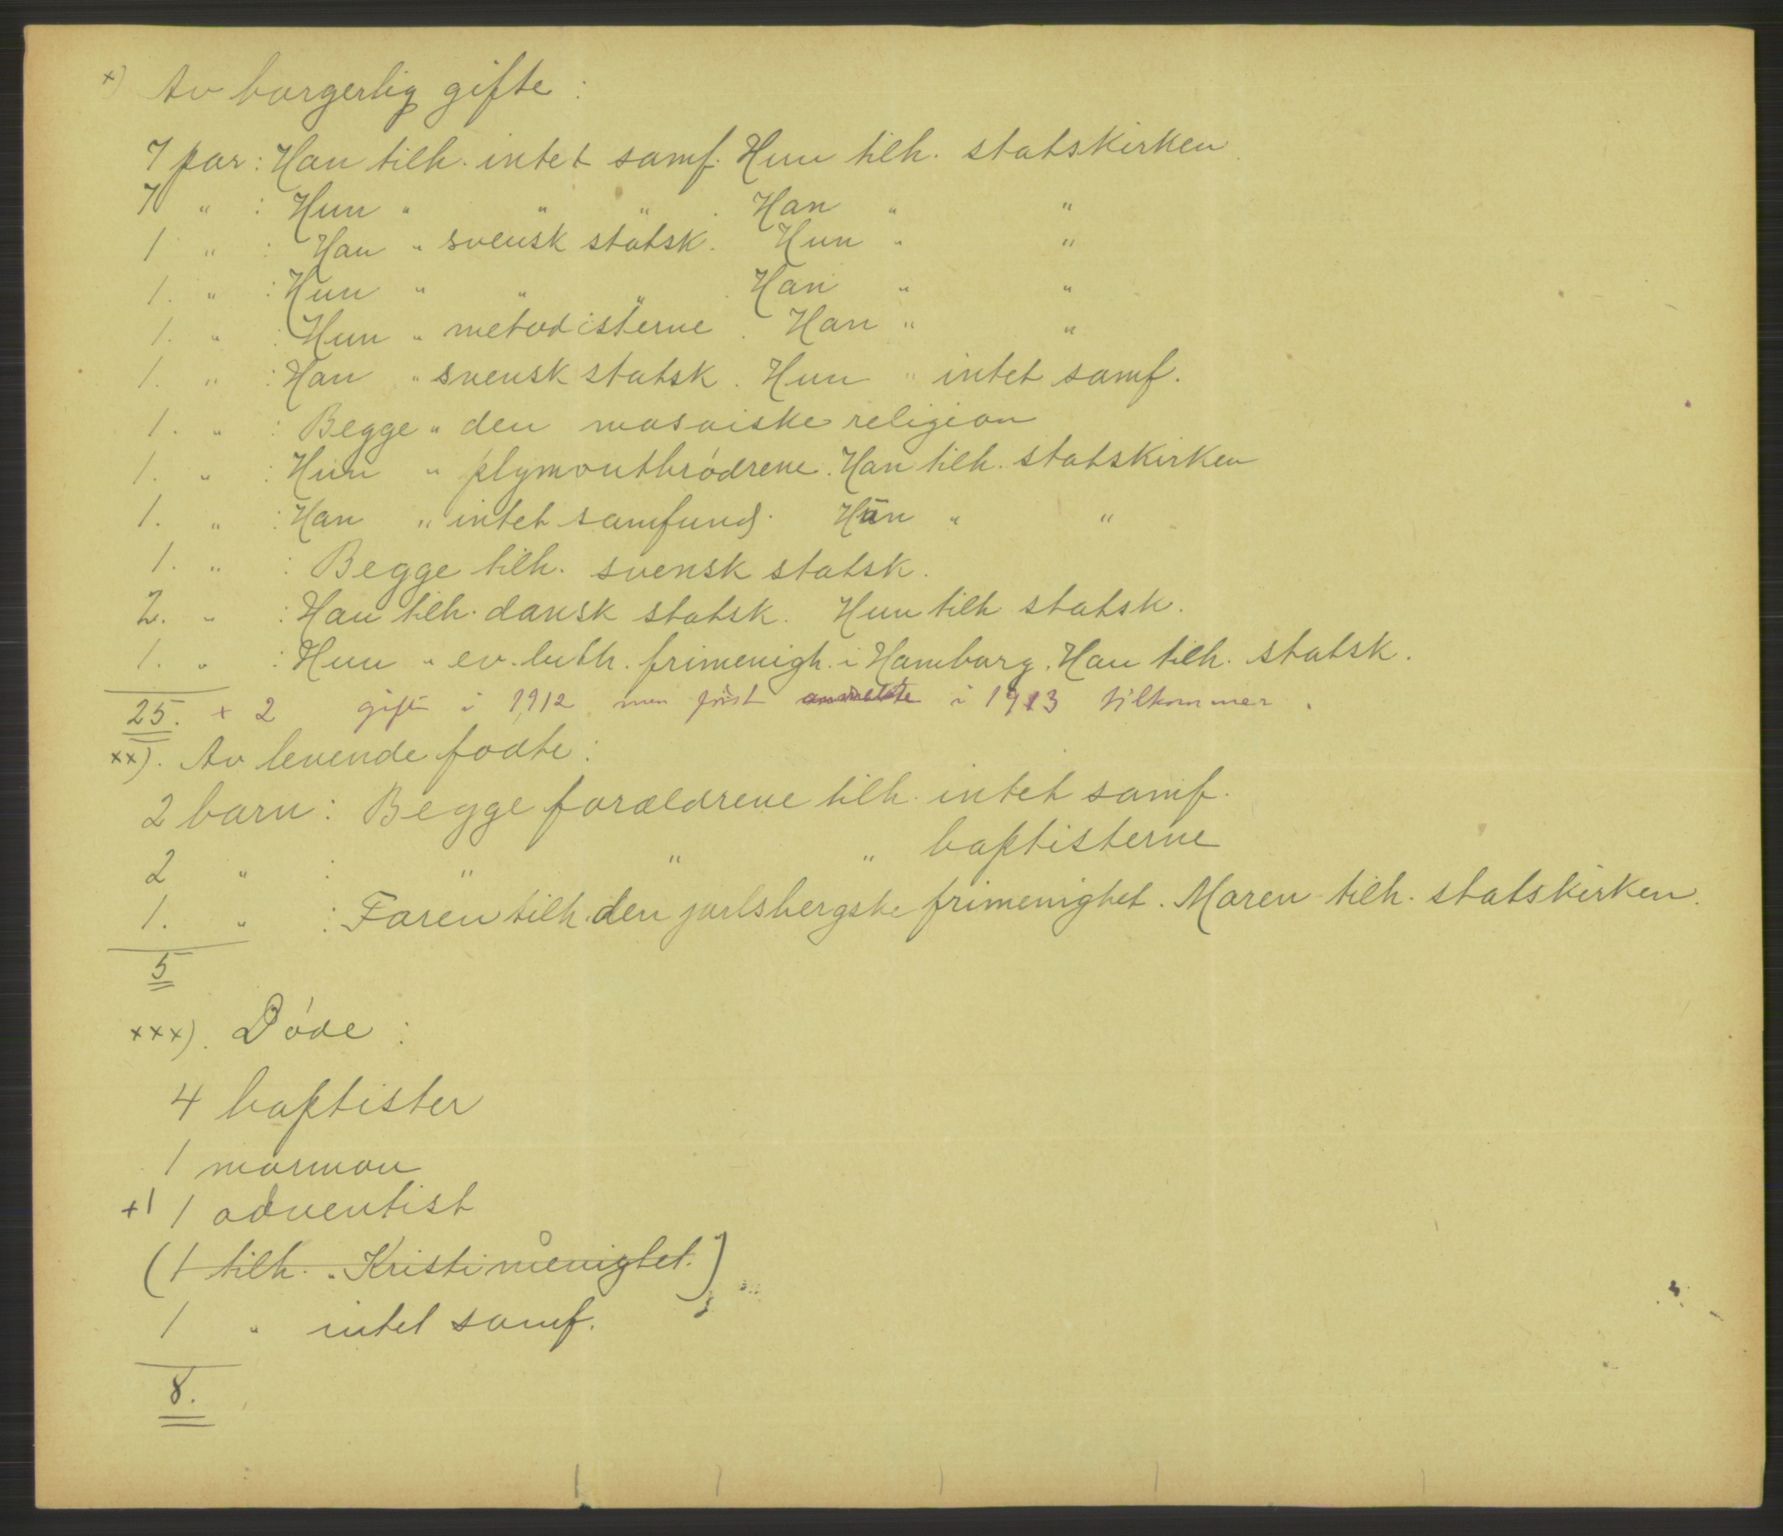 x) Av borgerlig gifte :
7 par : Han tilh. intet samf. Hun tilh. statskirken
7 " : Hun " " " . Han " "
1 " : Han " svensk statsk. Hun " "
1. " : Hun " " " . Han " "
1. " : Hun " metodisterne . Han " "
1. " : Han " svensk statsk . Hun " intet samf.
1. " : Begge " den mosaiske religion
1. " : Hun " plymouthbrødrene . Han tilh. statskirken
1. " : Han " intet samfund . Hun " "
1. " : Begge tilh. svensk statsk.
2. " : Han tilh. dansk statsk. Hun tilh statsk.
1. " : Hun " ev. luth. frimenigh. i Hamburg. Han tilh. statsk.
25. + 2 gift i 1912 men først i 1913 tilkommer .
xx). Av levende fødte :
2 barn : Begge forældrene tilh. intet samf.
2 " : " " " baptisterne
1. " : Faren tilh. den jarlsbergske frimenighet. Moren tilh. statskirken.
5
xxx). Døde :
4 baptister
1 mormon
+1 1 adventist
(1 tilh. " Kristi menighet.)
1 " intet samf.
8.